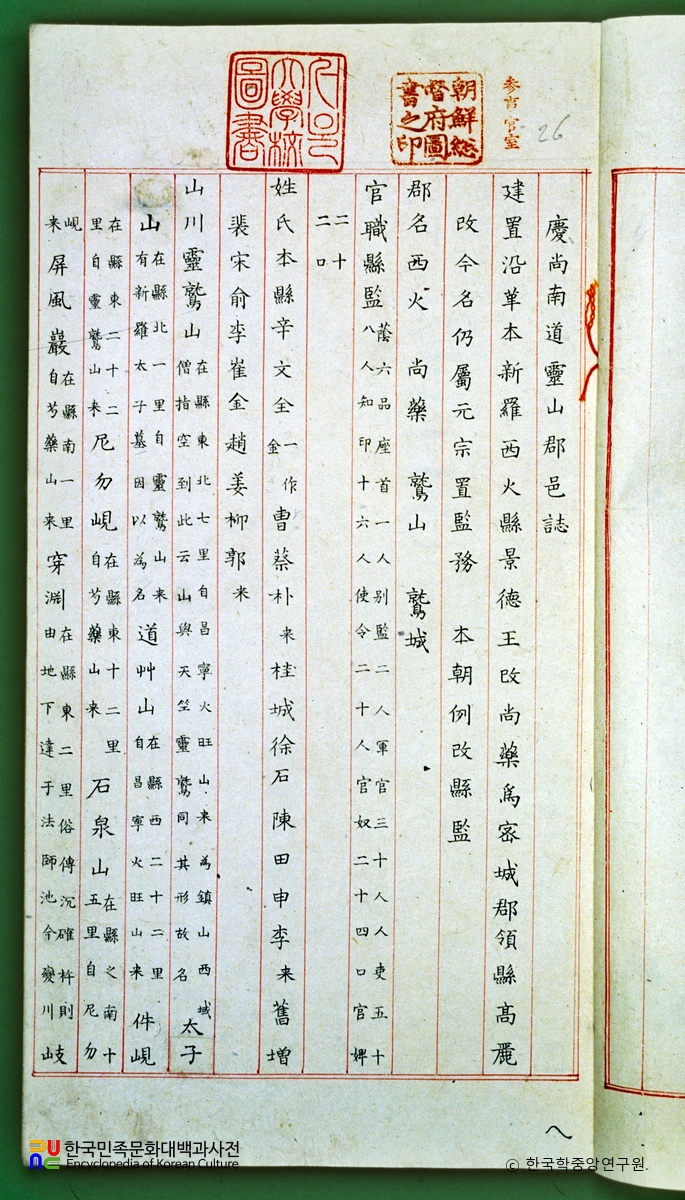 朝鮮総
督府圖
書之印
서울
大學校
圖書
参事官室
26
慶尚南道靈山郡邑誌
建置沿革本新羅西火縣景德王改尚藥爲密城郡領縣高麗
改今名仍屬元宗置監務 本朝例改縣監
郡名西火 尚藥 鷲山 鷲城
官職縣監蔭六品座首一人別監二人軍官三十人人吏五十八人知印十六人使令二十人官奴二十四口官婢
二十二口
姓氏本縣辛文全一作金曺蔡朴來桂城徐石陳田申李來舊增
裴宋俞李崔金趙姜柳郭來
山川靈鷲山在縣東北七里自昌寧火旺山來為鎮山西域僧指空到此云山與天竺靈鷲同其形故名太子
山在縣北一里自靈鷲山來有新羅太子墓因以為名道艸山在縣西二十二里自昌寧火旺山來件峴
在縣東二十二里自靈鷲山來尼勿峴在縣東十二里自芍藥山來石泉山在縣之南十五里自尼勿
峴來屏風巖在縣南一里自芍藥山來穿淵在縣東二里俗傳沉確杵則由地下達于法師池今變川岐
한국민족문화대백과사전
Encyclopedia of Korean Culture
© 한국학중앙연구원.